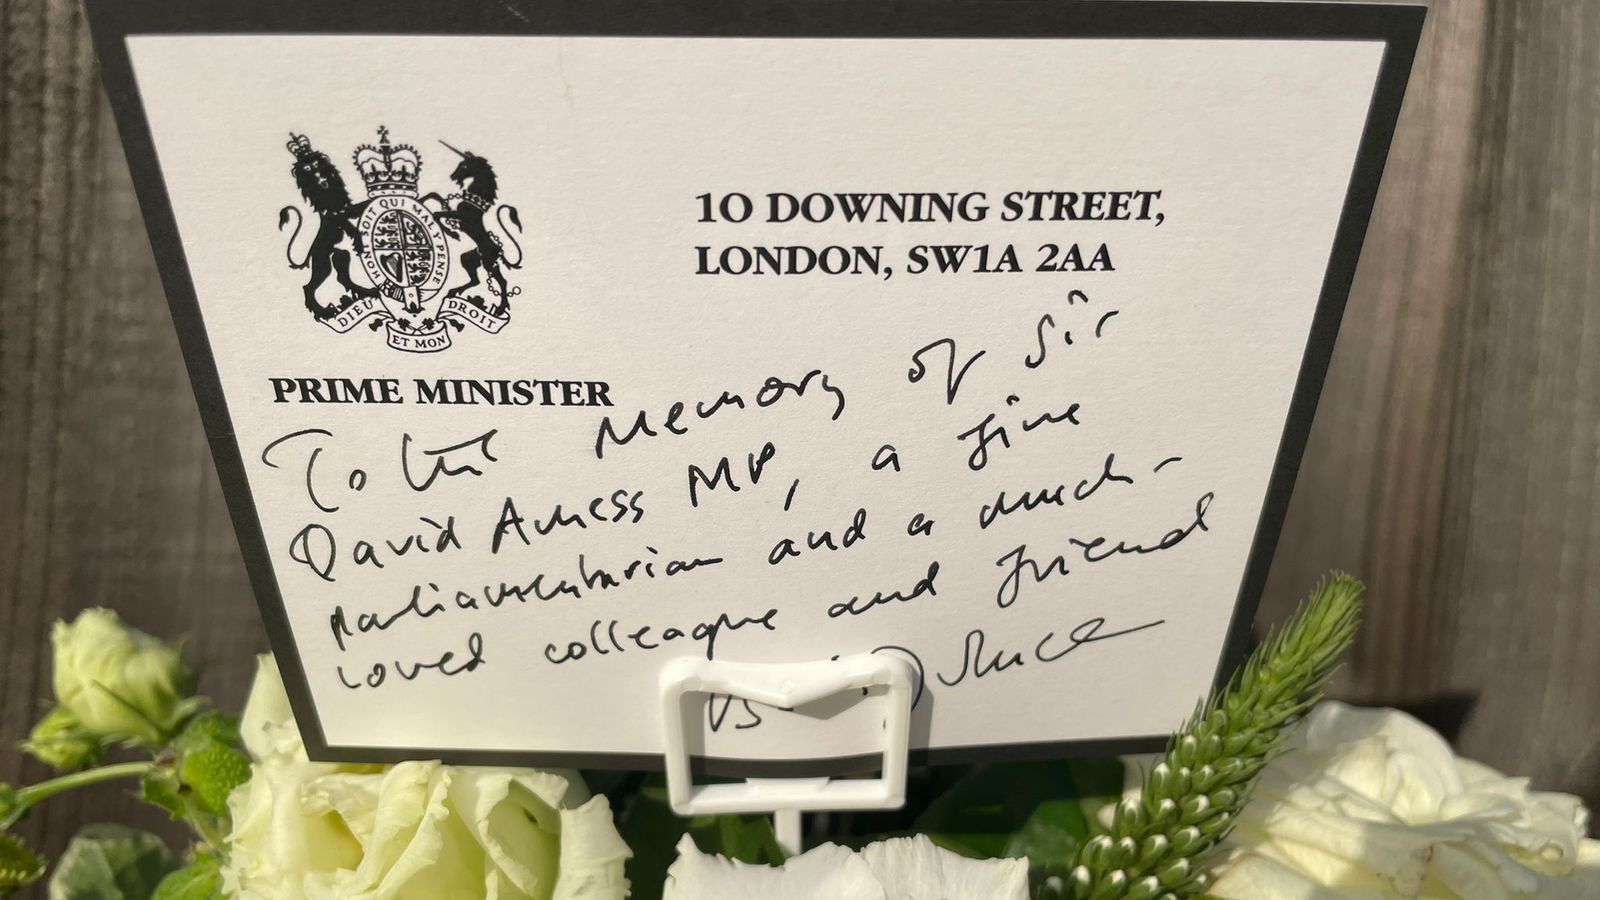 HONI SOIT QUI MAL Y PENSE
DIEU ET MON DROIT
PRIME MINISTER
10 DOWNING STREET,
LONDON, SW1A 2AA
To the Memory of Sir
David Amess MP, a fine
parliamentarian and a much-
loved colleague and friend